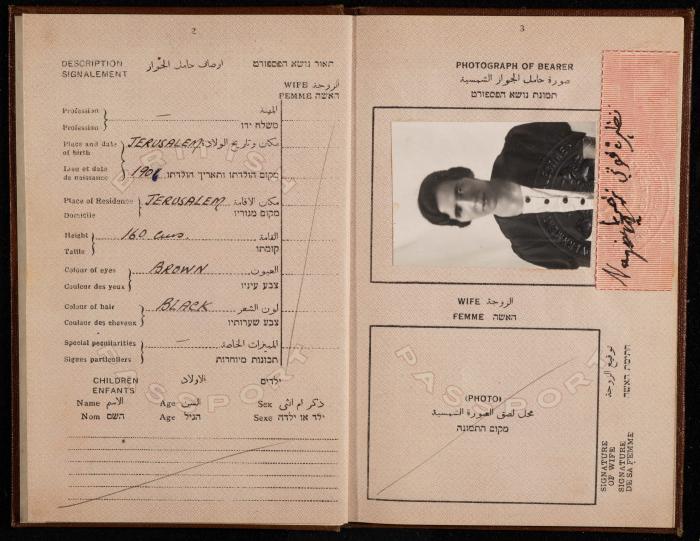 2
DESCRIPTION
SIGNALEMENT
اوصاف حامل الجواز
תאור נושא הפספורט
WIFE الزوجة
FEMME האשה
Profession — المهنة
Profession משלח ידו
Place and date of birth JERUSALEM مكان وتاريخ الولادة
Lieu et date de naissance 1906 מקום הולדתו ותאריך הולדתו
Place of Residence JERUSALEM مكان الاقامة
Domicile מקום מגוריו
Height 160 cms. القامة
Taille קומתו
Colour of eyes BROWN العيون
Couleur des yeux צבע עיניו
Colour of hair BLACK لون الشعر
Couleur des cheveux צבע שערותיו
Special peculiarities — المميزات الخاصة
Signes particuliers תכונות מיוחדות
CHILDREN الاولاد ילדים
ENFANTS
Name الاسم Age السن Sex ذكر ام انثى
Nom השם Age הגיל Sexe ילד או ילדה
BRITISH
PASSPORT
3
PHOTOGRAPH OF BEARER
صورة حامل الجواز الشمسية
תמונת נושא הפספורט
WIFE الزوجة
FEMME האשה
(PHOTO)
محل لصق الصورة الشمسية
מקום התמונה
PASSPORT
SIGNATURE OF WIFE
SIGNATURE DE SA FEMME
توقيع الزوجة
חתימת האשה